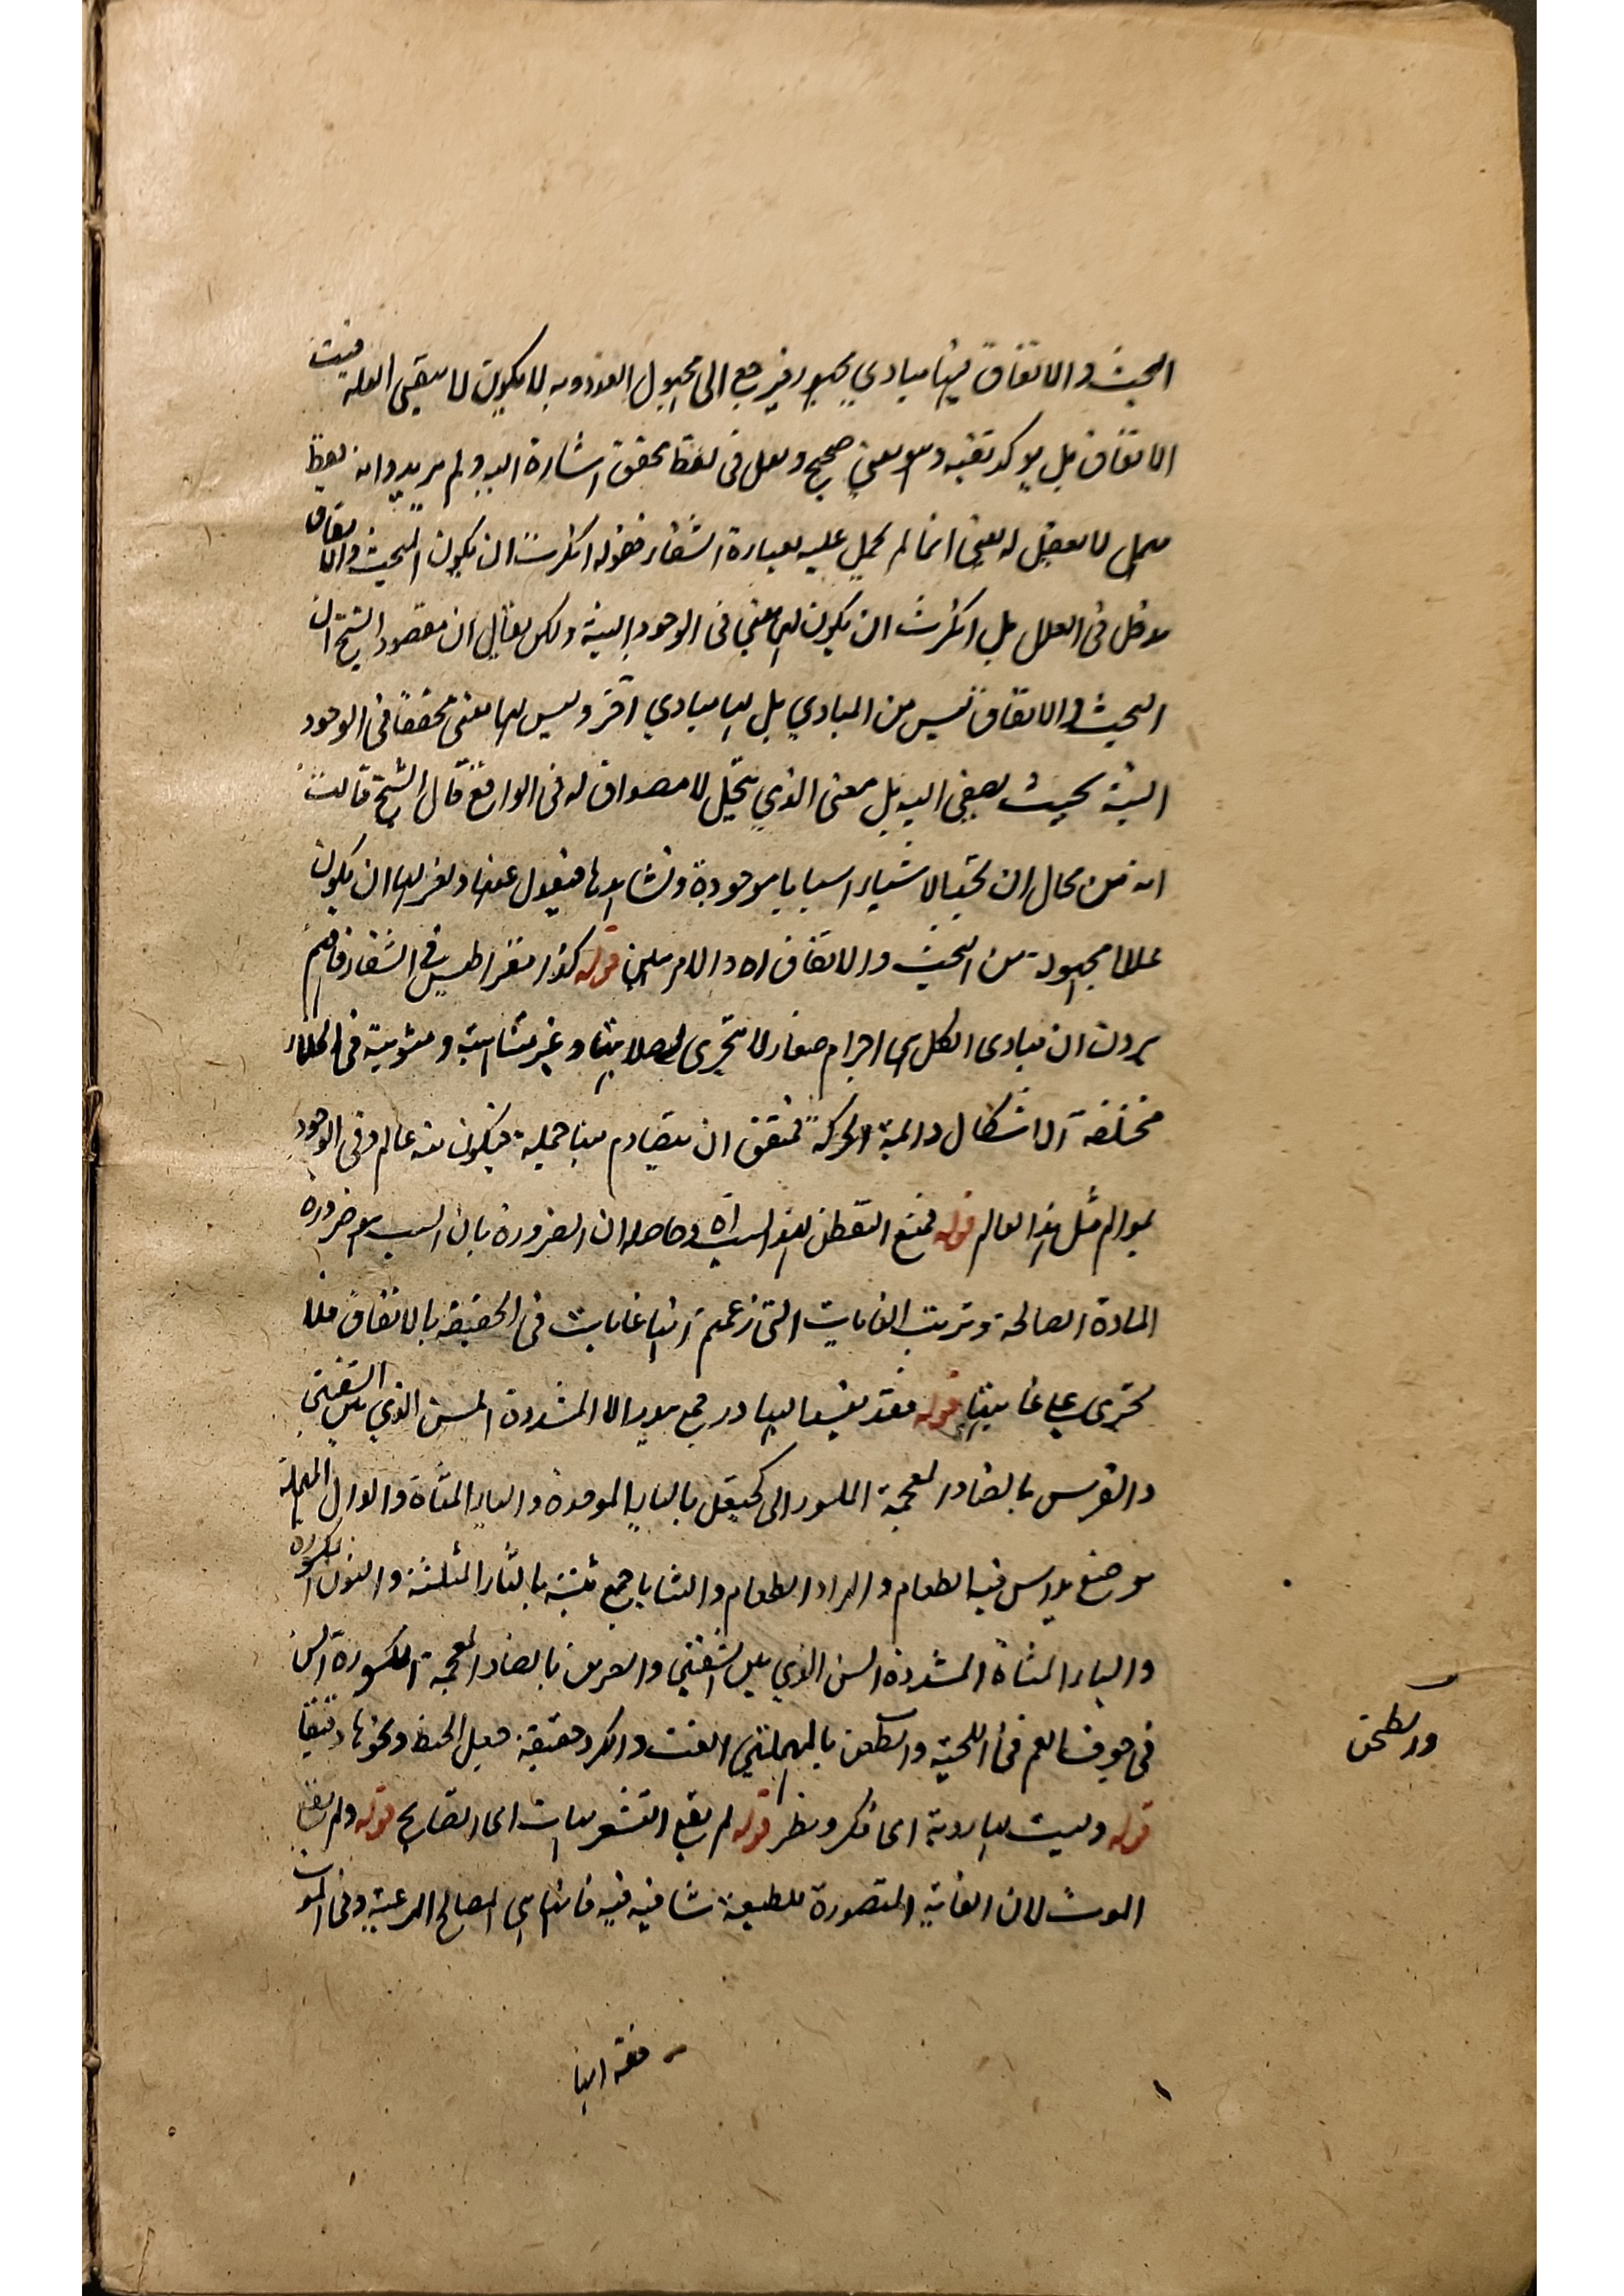 البخث والاتفاق فيها مبادي يجبور فيرجع الى مجهول العذوبه لا يكون لا ينبغي العله فيث
الاتفاق بل يوكد تقيه وهو معنى صحيح ولعل فى لفظ تحقق اشارة اليه ولم يريد وا به لفظ
مهمل لا يعقل له معنى انما لم يحمل عليه بعبارة الشفاء فقوله انكرت ان يكون البخث والاتفاق
مدخل فى العلل بل انكرت ان يكون لها معنى فى الوجود البتة ولكن يقال ان مقصود الشيخ ان
البخث والاتفاق ليس من المبادي بل لها مبادي آخر وليس لها معنى محققا فى الوجود
البتة بحيث يصغى اليه بل معنى الذي يتخيل لا مصداق له فى الواقع قال الشيخ قالت
انه من محال ان نجد للاشياء اسبابا موجودة ونشاهدها فنعدل عنها ونفر لها ان يكون
عللا مجهولة من البخث والاتفاق اه والامر سهل قوله كذا مقراطيس فى الشفاء فانهم
يرون ان مبادى الكل هى اجرام صغار لا تتجزى لصلابتها وغير متناهية ومبثوثة فى الخلاء
مختلفة الاشكال دائمة الحركة فيتفق ان يتصادم منها جملة فيكون منه عالم وفى الوجود
عوالم مثل هذا العالم قوله فمنع التفطن لهذا السبب اه وحاصله ان الضرورة بان السبب هو ضرورة
المادة الصالحة وترتب الغايات التى زعمتم انها غايات فى الحقيقة بالاتفاق فلا
تجرى على غايتها قوله فقد يفسد البيادر جمع بيدر الا المشددة المسن الذي يلى الشفتين
والضرس بالضاد المعجمة المكسور الى كحيقل بالباء الموحدة والياء المثناة والدال المهملة
موضع يداس فيه الطعام والمراد الطعام والثنايا جمع ثنية بالثاء المثلثة والنون المكسورة
والياء المثناة المشددة السن الذي يلى الشفتين والضرس بالضاد المعجمة المكسورة السن
فى جوف الفم فى اللحية والطحن بالمهملتين الفت والكرد حقيقة جعل الحنطة ونحوها دقيقا
قوله وليست لها روية اى فكر ونظر قوله لم يقع التشويهات اى القبايح قوله ولم يقع
الموت لان الغاية المتصورة للطبيعة شافية فيه فانها هى المصالح المرعية وفى الموت
والطحن
فقه انها